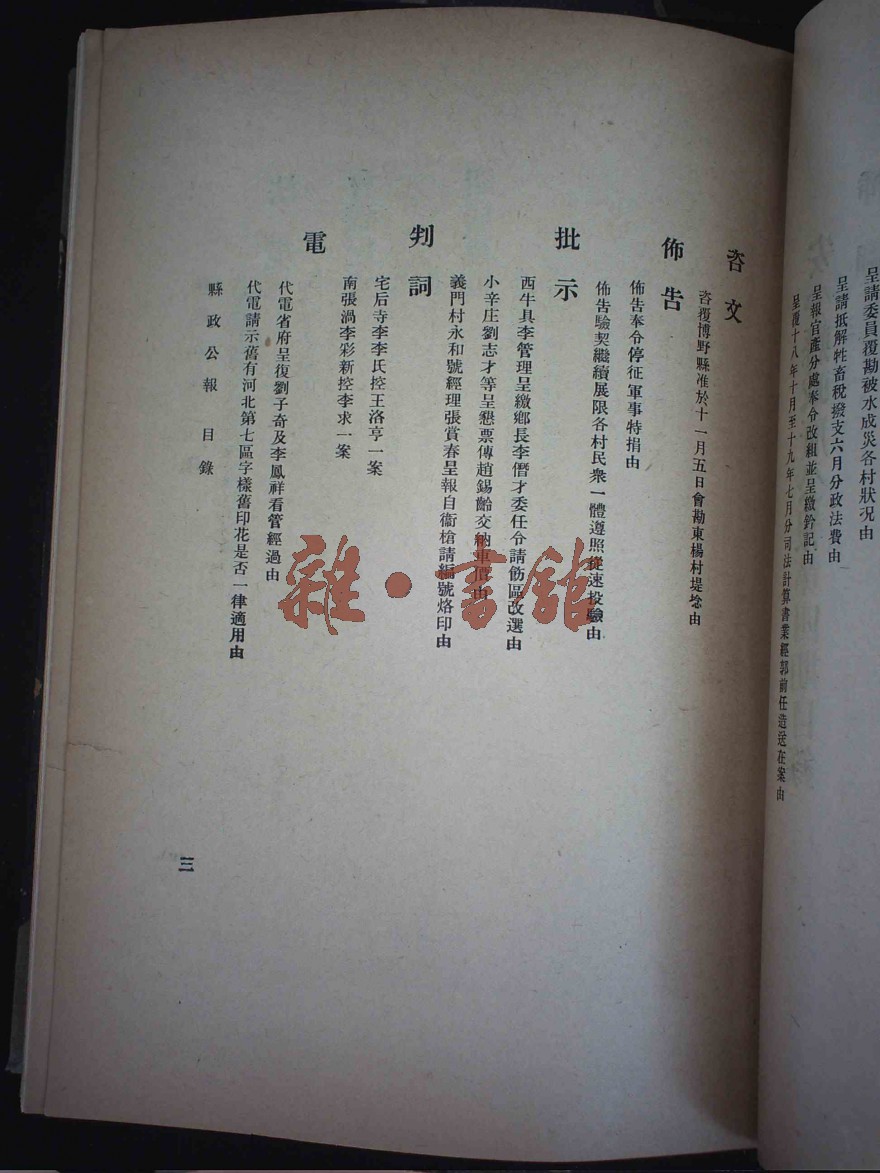 呈請委員覆勘被水成災各村狀況由
呈請抵解牲畜稅撥支六月分政法費由
呈報官產分處奉令改組並呈繳鈐記由
呈覆十八年十月至十九年七月分司法計算書業經郭前任造送在案由
咨文
咨覆博野縣准於十一月五日會勘東楊村堤埝由
佈告
佈告奉令停征軍事特捐由
佈告驗契繼續展限各村民衆一體遵照從速投驗由
批示
西牛具李管理呈繳鄉長李僭才委任令請飭區改選由
小辛庄劉志才等呈懇票傳趙錫齡交納車價由
義門村永和號經理張賞春呈報自衞槍請編號烙印由
判詞
宅后寺李李氏控王洛亨一案
南張渦李彩新控李求一案
電
代電省府呈復劉子奇及李鳳祥看管經過由
代電請示舊有河北第七區字樣舊印花是否一律適用由
縣政公報 目錄
三
雜·書館